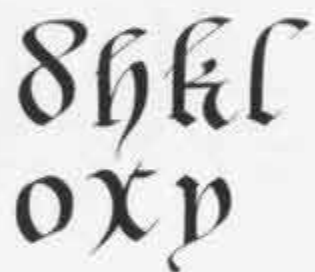 dhkl
oxy